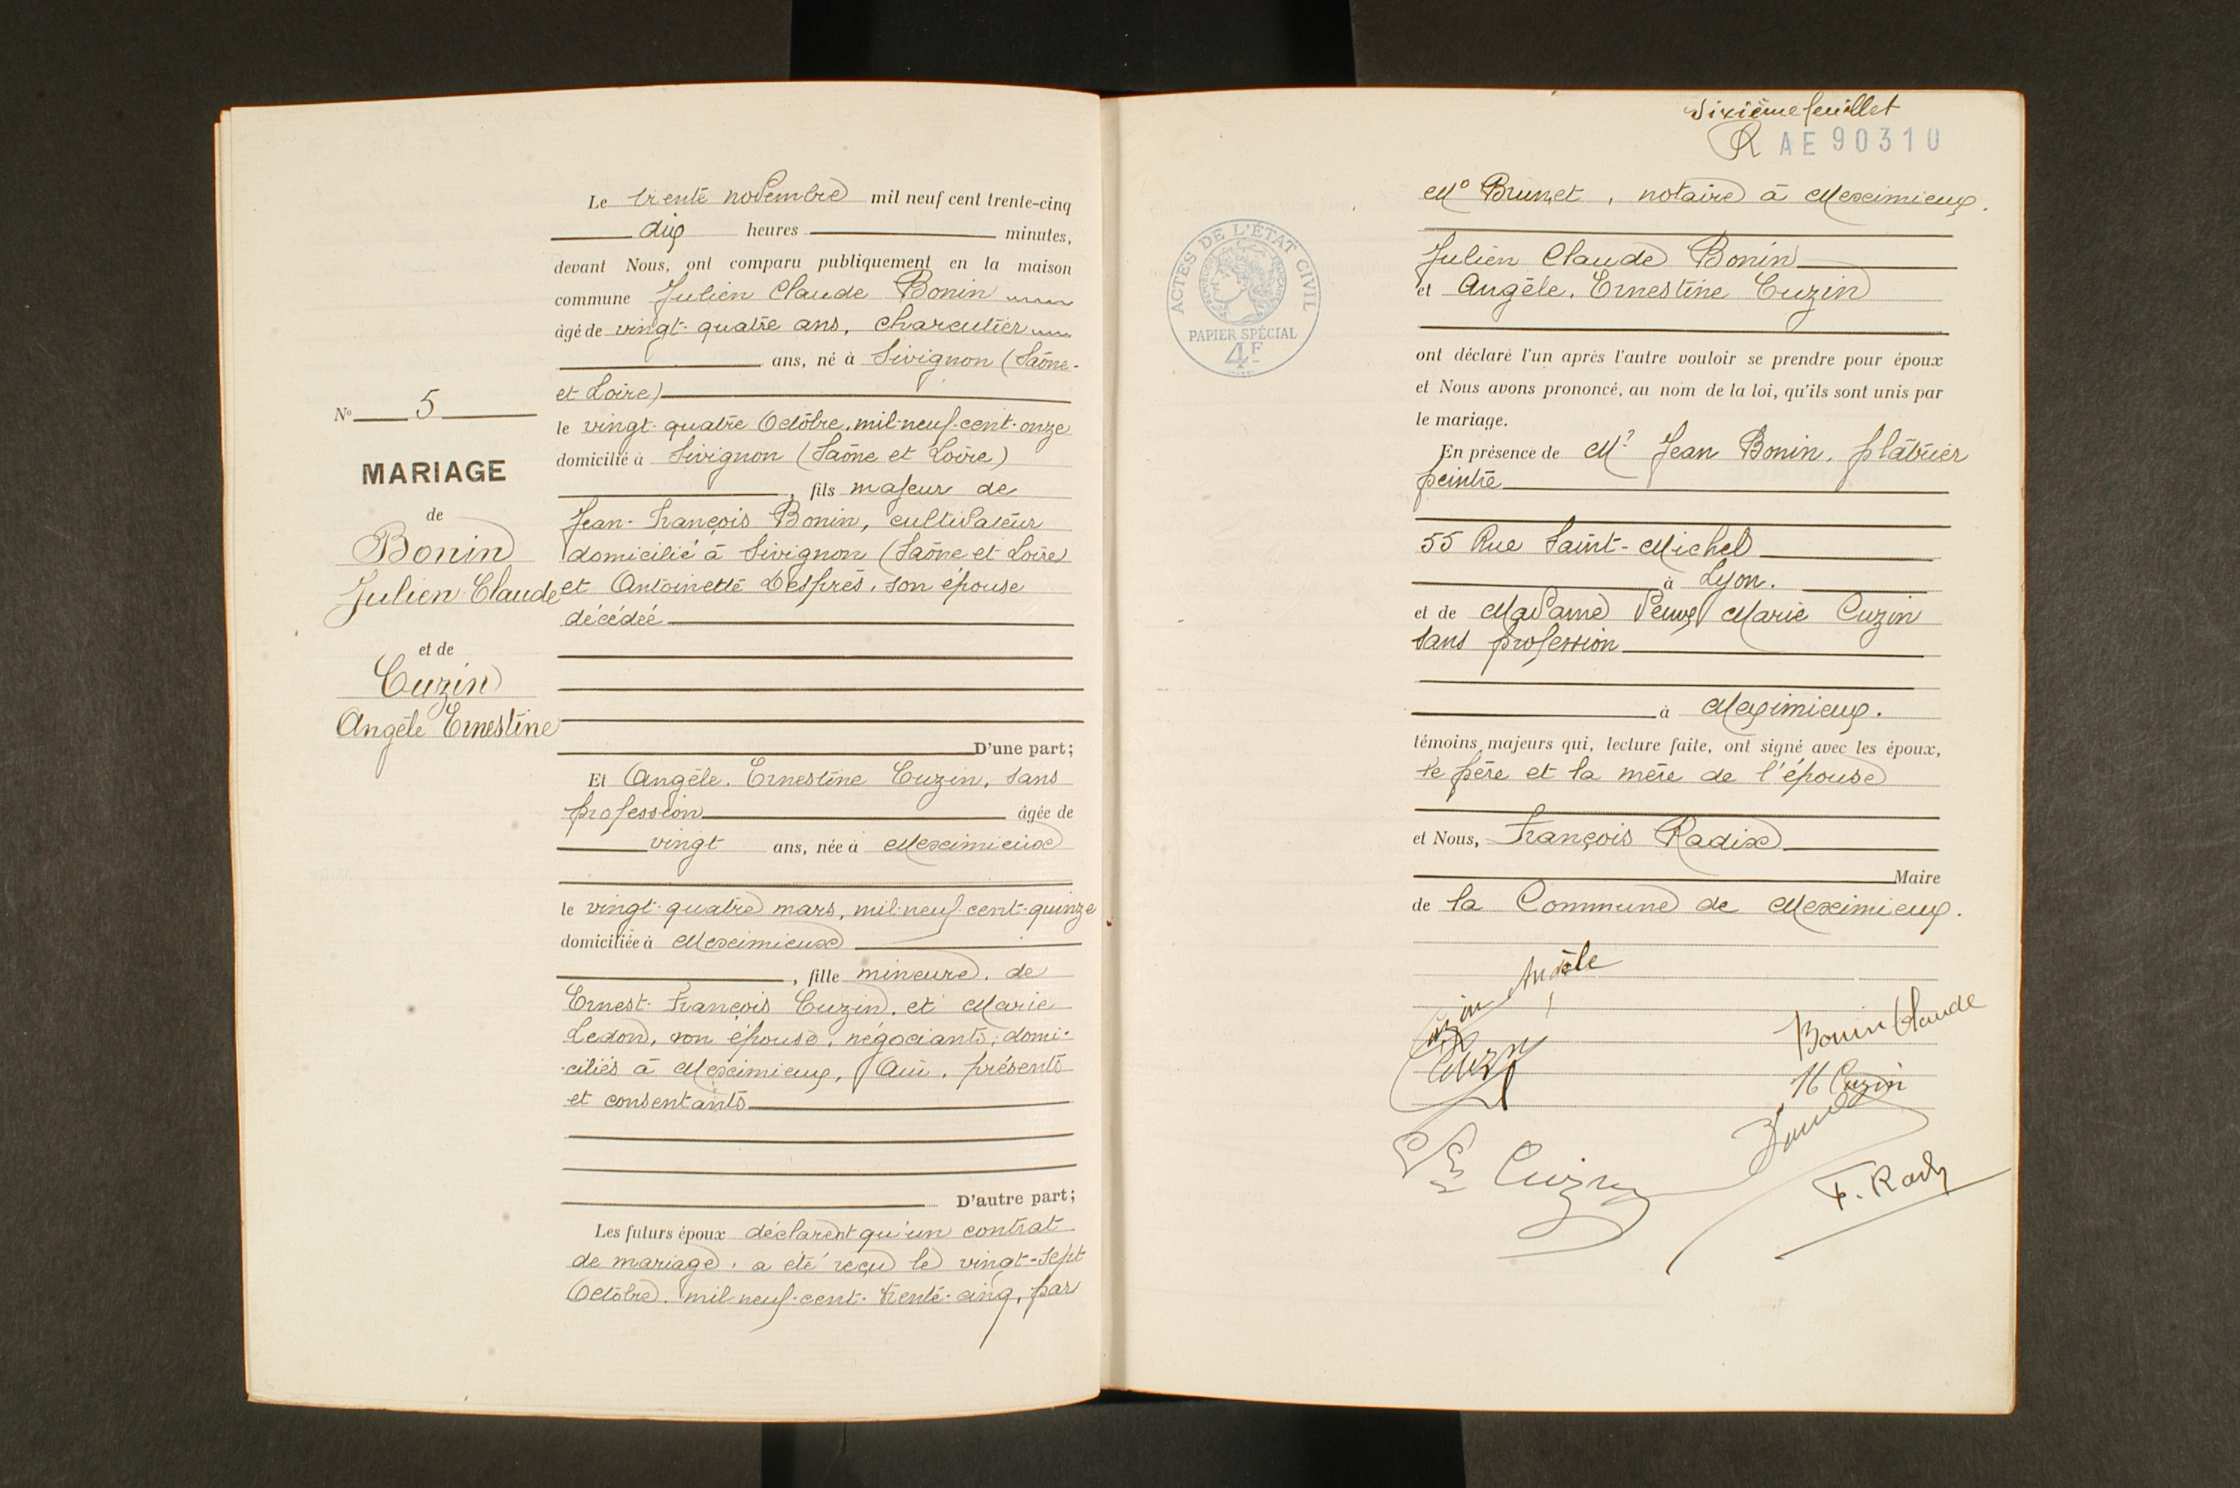 Le trente novembre mil neuf cent trente-cinq
dix heures minutes,
devant Nous, ont comparu publiquement en la maison
commune Julien Claude Bonin
âgé de vingt-quatre ans, charcutier
ans, né à Sivignon (Saône-
et Loire)
le vingt-quatre Octobre, mil-neuf-cent-onze
domicilié à Sivignon (Saône et Loire)
, fils majeur de
Jean-François Bonin, cultivateur
domicilié à Sivignon (Saône et Loire)
et Antoinette Desprès, son épouse
décédée
D'une part;
Et Angèle, Ernestine Cuzin, sans
profession âgée de
vingt ans, née à Meximieux
le vingt-quatre mars, mil-neuf-cent-quinze
domiciliée à Meximieux
, fille mineure, de
Ernest-François Cuzin, et Marie
Ledon, son épouse, négociants, domi-
-ciliés à Meximieux, Qui, présents
et consentants
D'autre part;
Les futurs époux déclarent qu'un contrat
de mariage, a été reçu le vingt-sept
Octobre, mil neuf-cent-trente-cinq, par
No 5
MARIAGE
de
Bonin
Julien Claude
et de
Cuzin
Angèle Ernestine
Sixième feuillet
R AE 90310
ACTES DE L'ÉTAT CIVIL
PAPIER SPÉCIAL
4F
Me Brunet, notaire à Meximieux.
Julien Claude Bonin
et Angèle, Ernestine Cuzin
ont déclaré l'un après l'autre vouloir se prendre pour époux
et Nous avons prononcé, au nom de la loi, qu'ils sont unis par
le mariage.
En présence de Mr Jean Bonin, plâtrier
peintre
55 Rue Saint-Michel
à Lyon.
et de Madame Veuve Marie Cuzin
sans profession
à Meximieux.
témoins majeurs qui, lecture faite, ont signé avec les époux,
le père et la mère de l'épouse
et Nous, François Radix
Maire
de la Commune de Meximieux.
Cuzin Angèle
Bonin Claude
Cuzin
M Cuzin
Cuzin
F. Radix